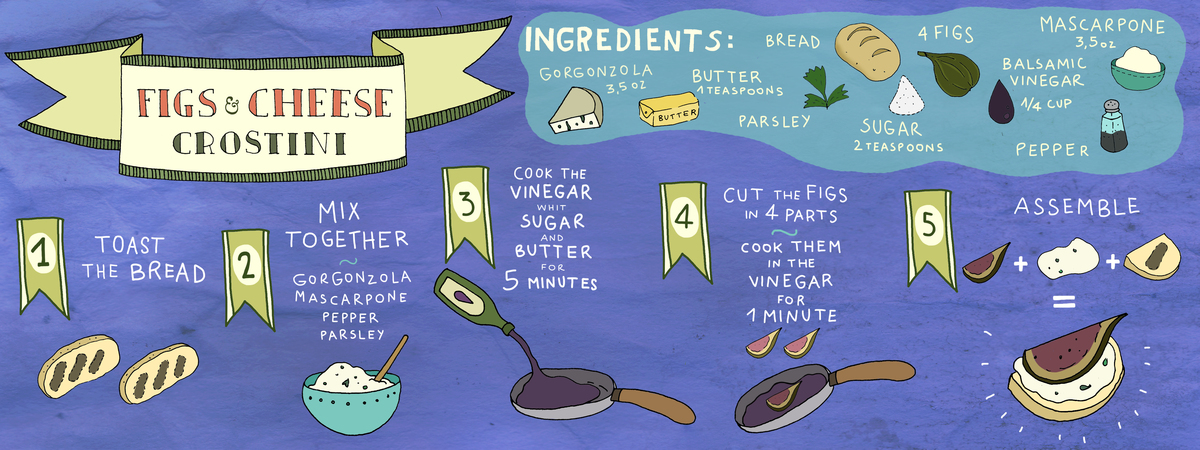 FIGS & CHEESE
CROSTINI
INGREDIENTS:
GORGONZOLA
3,5 OZ
BUTTER
1 TEASPOONS
BUTTER
BREAD
PARSLEY
4 FIGS
SUGAR
2 TEASPOONS
MASCARPONE
3,5 OZ
BALSAMIC
VINEGAR
1/4 CUP
PEPPER
1
TOAST
THE BREAD
2
MIX
TOGETHER
~
GORGONZOLA
MASCARPONE
PEPPER
PARSLEY
3
COOK THE
VINEGAR
WHIT
SUGAR
AND
BUTTER
FOR
5 MINUTES
4
CUT THE FIGS
IN 4 PARTS
~
COOK THEM
IN THE
VINEGAR
FOR
1 MINUTE
5
ASSEMBLE
+ +
=